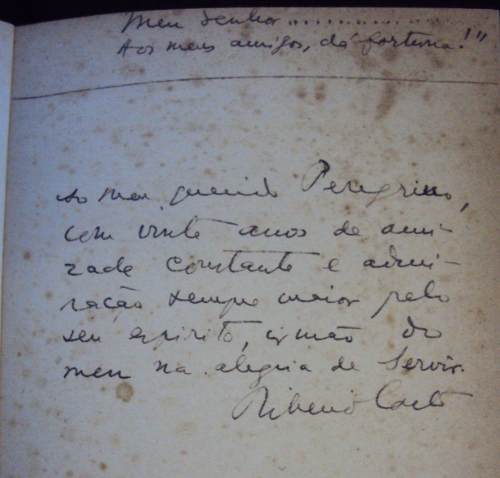 Meu Senhor ..................
Aos meus amigos, dá fortuna!"
Ao meu querido Peregrino,
com vinte anos de ami-
zade constante e admi-
ração sempre maior pelo
seu espirito, irmão do
meu na alegria de servir.
Ribeiro Couto